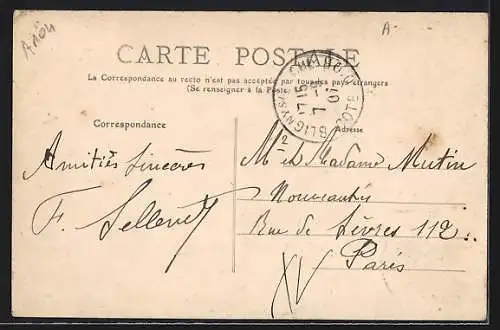 A-
CARTE POSTALE
La Correspondance au recto n'est pas acceptée par tous les pays étrangers
(Se renseigner à la Poste)
BLIGNY-S COTE-D'O
17 15
7 -
07
Correspondance
Adresse
Amitiés sincères
F.
Mr et Madame Mutin
Nouveautés
Rue de Sèvres 112
Paris
XV